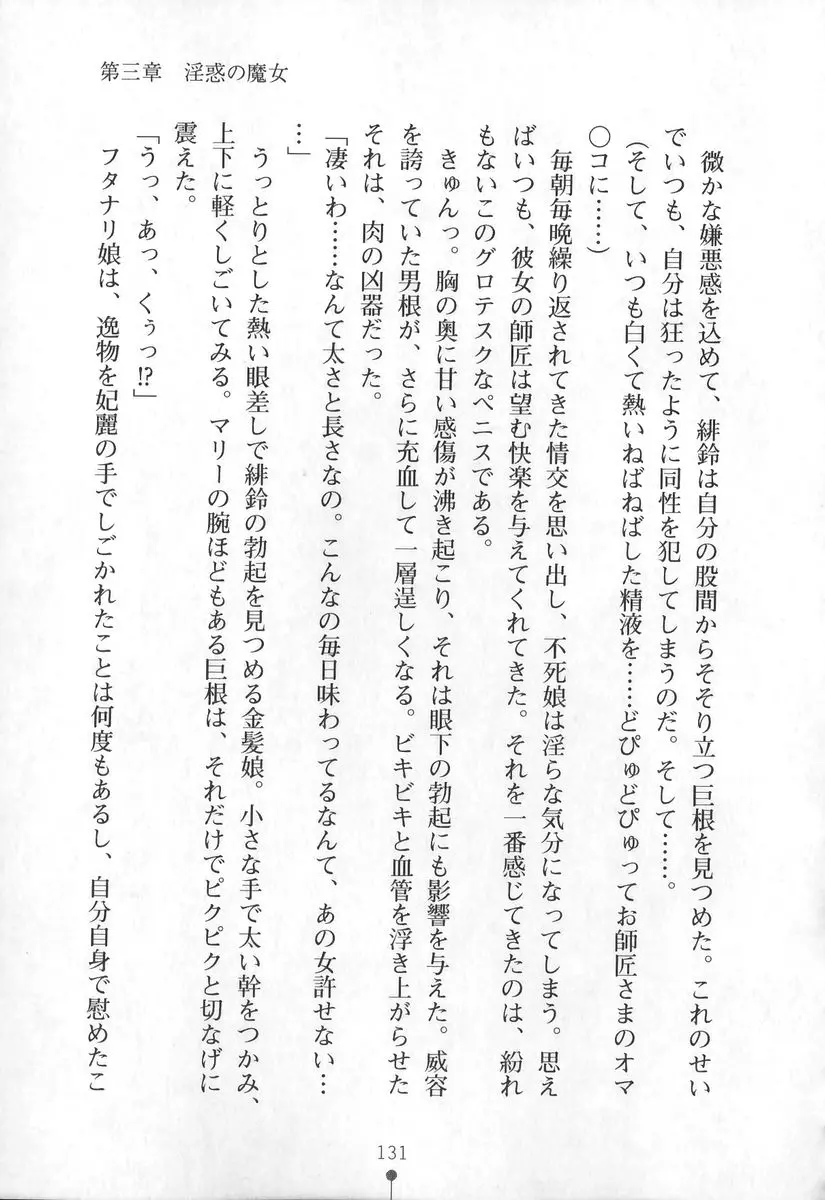 第三章　淫惑の魔女
　微かな嫌悪感を込めて、緋鈴は自分の股間からそそり立つ巨根を見つめた。これのせい
でいつも、自分は狂ったように同性を犯してしまうのだ。そして……。
（そして、いつも白くて熱いねばねばした精液を……どぴゅどぴゅってお師匠さまのオマ
〇コに……）
　毎朝毎晩繰り返されてきた情交を思い出し、不死娘は淫らな気分になってしまう。思え
ばいつも、彼女の師匠は望む快楽を与えてくれてきた。それを一番感じてきたのは、紛れ
もないこのグロテスクなペニスである。
　きゅんっ。胸の奥に甘い感傷が沸き起こり、それは眼下の勃起にも影響を与えた。威容
を誇っていた男根が、さらに充血して一層逞しくなる。ビキビキと血管を浮き上がらせた
それは、肉の凶器だった。
「凄いわ……なんて太さと長さなの。こんなの毎日味わってるなんて、あの女許せない…
…」
　うっとりとした熱い眼差しで緋鈴の勃起を見つめる金髪娘。小さな手で太い幹をつかみ、
上下に軽くしごいてみる。マリーの腕ほどもある巨根は、それだけでピクピクと切なげに
震えた。
「うっ、あっ、くぅっ!?」
　フタナリ娘は、逸物を妃麗の手でしごかれたことは何度もあるし、自分自身で慰めたこ
131